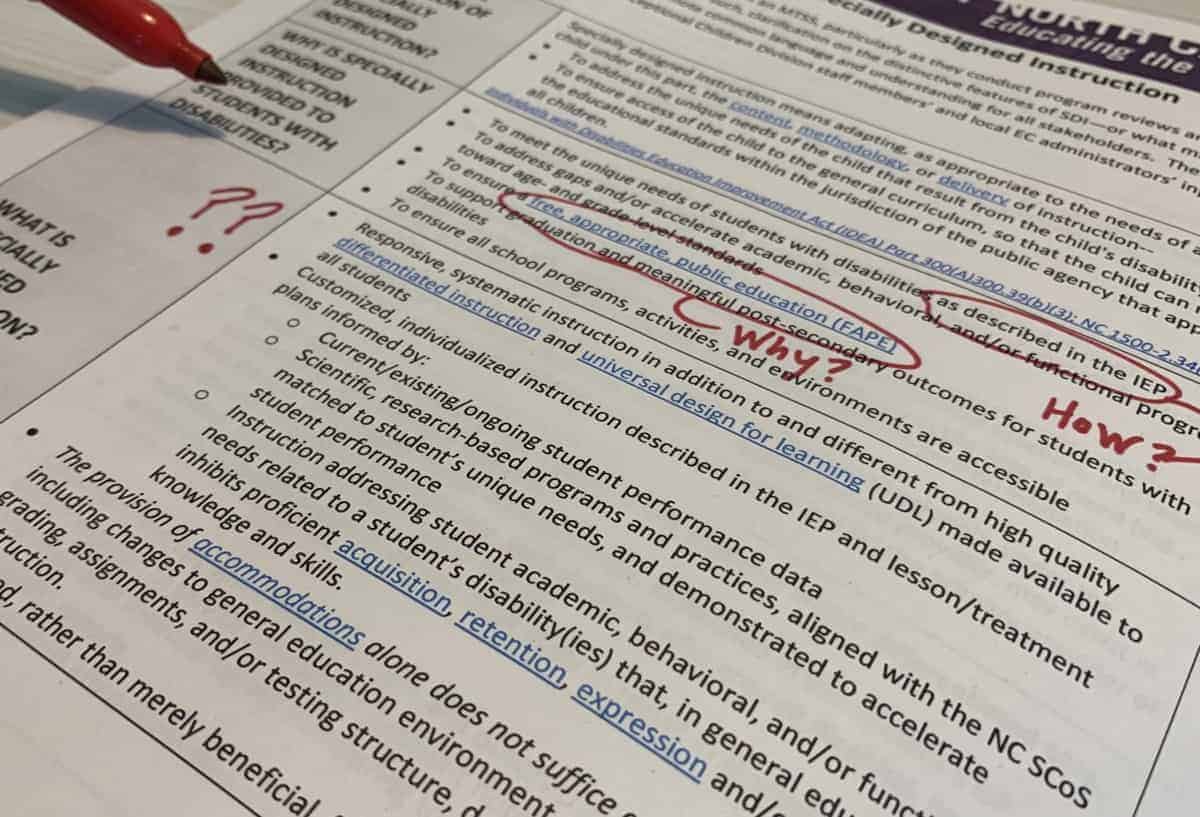 NORTH C
Educating the
ecially Designed Instruction
an MTSS, particularly as they conduct program reviews a
such, clarification on the distinctive features of SDI—or what m
common language and understanding for all stakeholders.
Exceptional Children Division staff members' and local EC administrators' in
ON OF
ALLY
DESIGNED
INSTRUCTION?
Specially designed instruction means adapting, as appropriate to the needs of a
child under this part, the content, methodology, or delivery of instruction—
To address the unique needs of the child that result from the child's disabilit
To ensure access of the child to the general curriculum, so that the child can
the educational standards within the jurisdiction of the public agency that app
all children.
Individuals with Disabilities Education Improvement Act (IDEA) Part 300(A)300.39(b)(3); NC 1500-2.34
WHY IS SPECIALLY
DESIGNED
INSTRUCTION
PROVIDED TO
STUDENTS WITH
DISABILITIES?
To meet the unique needs of students with disabilities as described in the IEP
To address gaps and/or accelerate academic, behavioral, and/or functional progre
toward age- and grade-level standards
To ensure a free, appropriate, public education (FAPE)
To support graduation and meaningful post-secondary outcomes for students with
disabilities
To ensure all school programs, activities, and environments are accessible
Why?
How?
??
WHAT IS
CIALLY
ED
ON?
Responsive, systematic instruction in addition to and different from high quality
differentiated instruction and universal design for learning (UDL) made available to
all students
Customized, individualized instruction described in the IEP and lesson/treatment
plans informed by:
Current/existing/ongoing student performance data
Scientific, research-based programs and practices, aligned with the NC SCoS
matched to student's unique needs, and demonstrated to accelerate
student performance
Instruction addressing student academic, behavioral, and/or funct
needs related to a student's disability(ies) that, in general edu
inhibits proficient acquisition, retention, expression and/
knowledge and skills.
The provision of accommodations alone does not suffice
including changes to general education environment
grading, assignments, and/or testing structure, d
truction.
ed, rather than merely beneficial